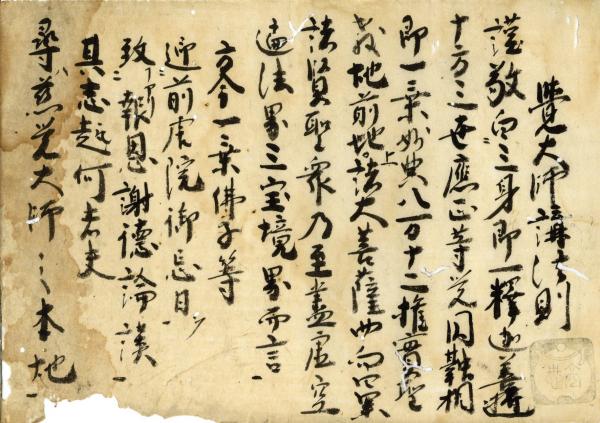 覺大師講法則
謹敬白三身即一釋迦善逝
十方三世應正等覚因
即一乗妙典八万十二權實聖
教地前地上諸大菩薩
諸賢聖衆乃至盡虚空
遍法界三宝境界而言
方今一乗佛子等
迎前唐院御忌日
致報恩謝德論談
其志趣何者夫
尋慈覚大師之本地